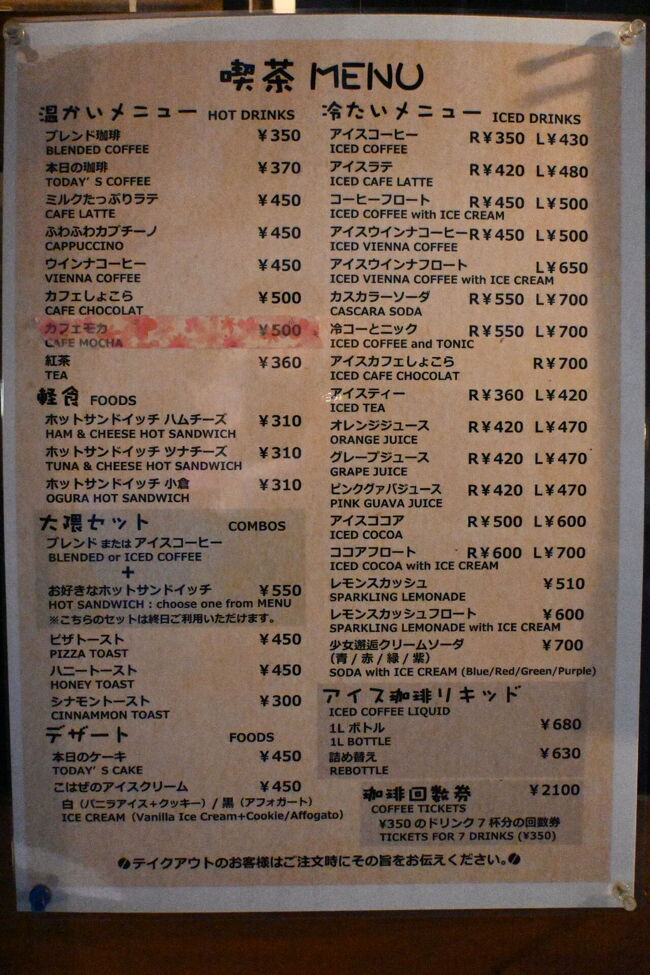 喫茶 MENU
温かいメニュー HOT DRINKS
ブレンド珈琲 ¥350
BLENDED COFFEE
本日の珈琲 ¥370
TODAY'S COFFEE
ミルクたっぷりラテ ¥450
CAFE LATTE
ふわふわカプチーノ ¥450
CAPPUCCINO
ウインナコーヒー ¥450
VIENNA COFFEE
カフェしょこら ¥500
CAFE CHOCOLAT
カフェモカ ¥500
CAFE MOCHA
紅茶 ¥360
TEA
軽食 FOODS
ホットサンドイッチ ハムチーズ ¥310
HAM & CHEESE HOT SANDWICH
ホットサンドイッチ ツナチーズ ¥310
TUNA & CHEESE HOT SANDWICH
ホットサンドイッチ 小倉 ¥310
OGURA HOT SANDWICH
大隈セット COMBOS
ブレンド または アイスコーヒー
BLENDED or ICED COFFEE
+
お好きなホットサンドイッチ ¥550
HOT SANDWICH : choose one from MENU
※こちらのセットは終日ご利用いただけます。
ピザトースト ¥450
PIZZA TOAST
ハニートースト ¥450
HONEY TOAST
シナモントースト ¥300
CINNAMMON TOAST
デザート FOODS
本日のケーキ ¥450
TODAY'S CAKE
こはぜのアイスクリーム ¥450
白（バニラアイス+クッキー）/ 黒（アフォガート）
ICE CREAM（Vanilla Ice Cream+Cookie/Affogato）
冷たいメニュー ICED DRINKS
アイスコーヒー R¥350 L¥430
ICED COFFEE
アイスラテ R¥420 L¥480
ICED CAFE LATTE
コーヒーフロート R¥450 L¥500
ICED COFFEE with ICE CREAM
アイスウインナコーヒー R¥450 L¥500
ICED VIENNA COFFEE
アイスウインナフロート L¥650
ICED VIENNA COFFEE with ICE CREAM
カスカラーソーダ R¥550 L¥700
CASCARA SODA
冷コーとニック R¥550 L¥700
ICED COFFEE and TONIC
アイスカフェしょこら R¥700
ICED CAFE CHOCOLAT
アイスティー R¥360 L¥420
ICED TEA
オレンジジュース R¥420 L¥470
ORANGE JUICE
グレープジュース R¥420 L¥470
GRAPE JUICE
ピンクグァバジュース R¥420 L¥470
PINK GUAVA JUICE
アイスココア R¥500 L¥600
ICED COCOA
ココアフロート R¥600 L¥700
ICED COCOA with ICE CREAM
レモンスカッシュ ¥510
SPARKLING LEMONADE
レモンスカッシュフロート ¥600
SPARKLING LEMONADE with ICE CREAM
少女邂逅クリームソーダ ¥700
（青 / 赤 / 緑 / 紫）
SODA with ICE CREAM (Blue/Red/Green/Purple)
アイス珈琲リキッド
ICED COFFEE LIQUID
1L ボトル ¥680
1L BOTTLE
詰め替え ¥630
REBOTTLE
珈琲回数券 ¥2100
COFFEE TICKETS
¥350 のドリンク 7 杯分の回数券
TICKETS FOR 7 DRINKS (¥350)
テイクアウトのお客様はご注文時にその旨をお伝えください。